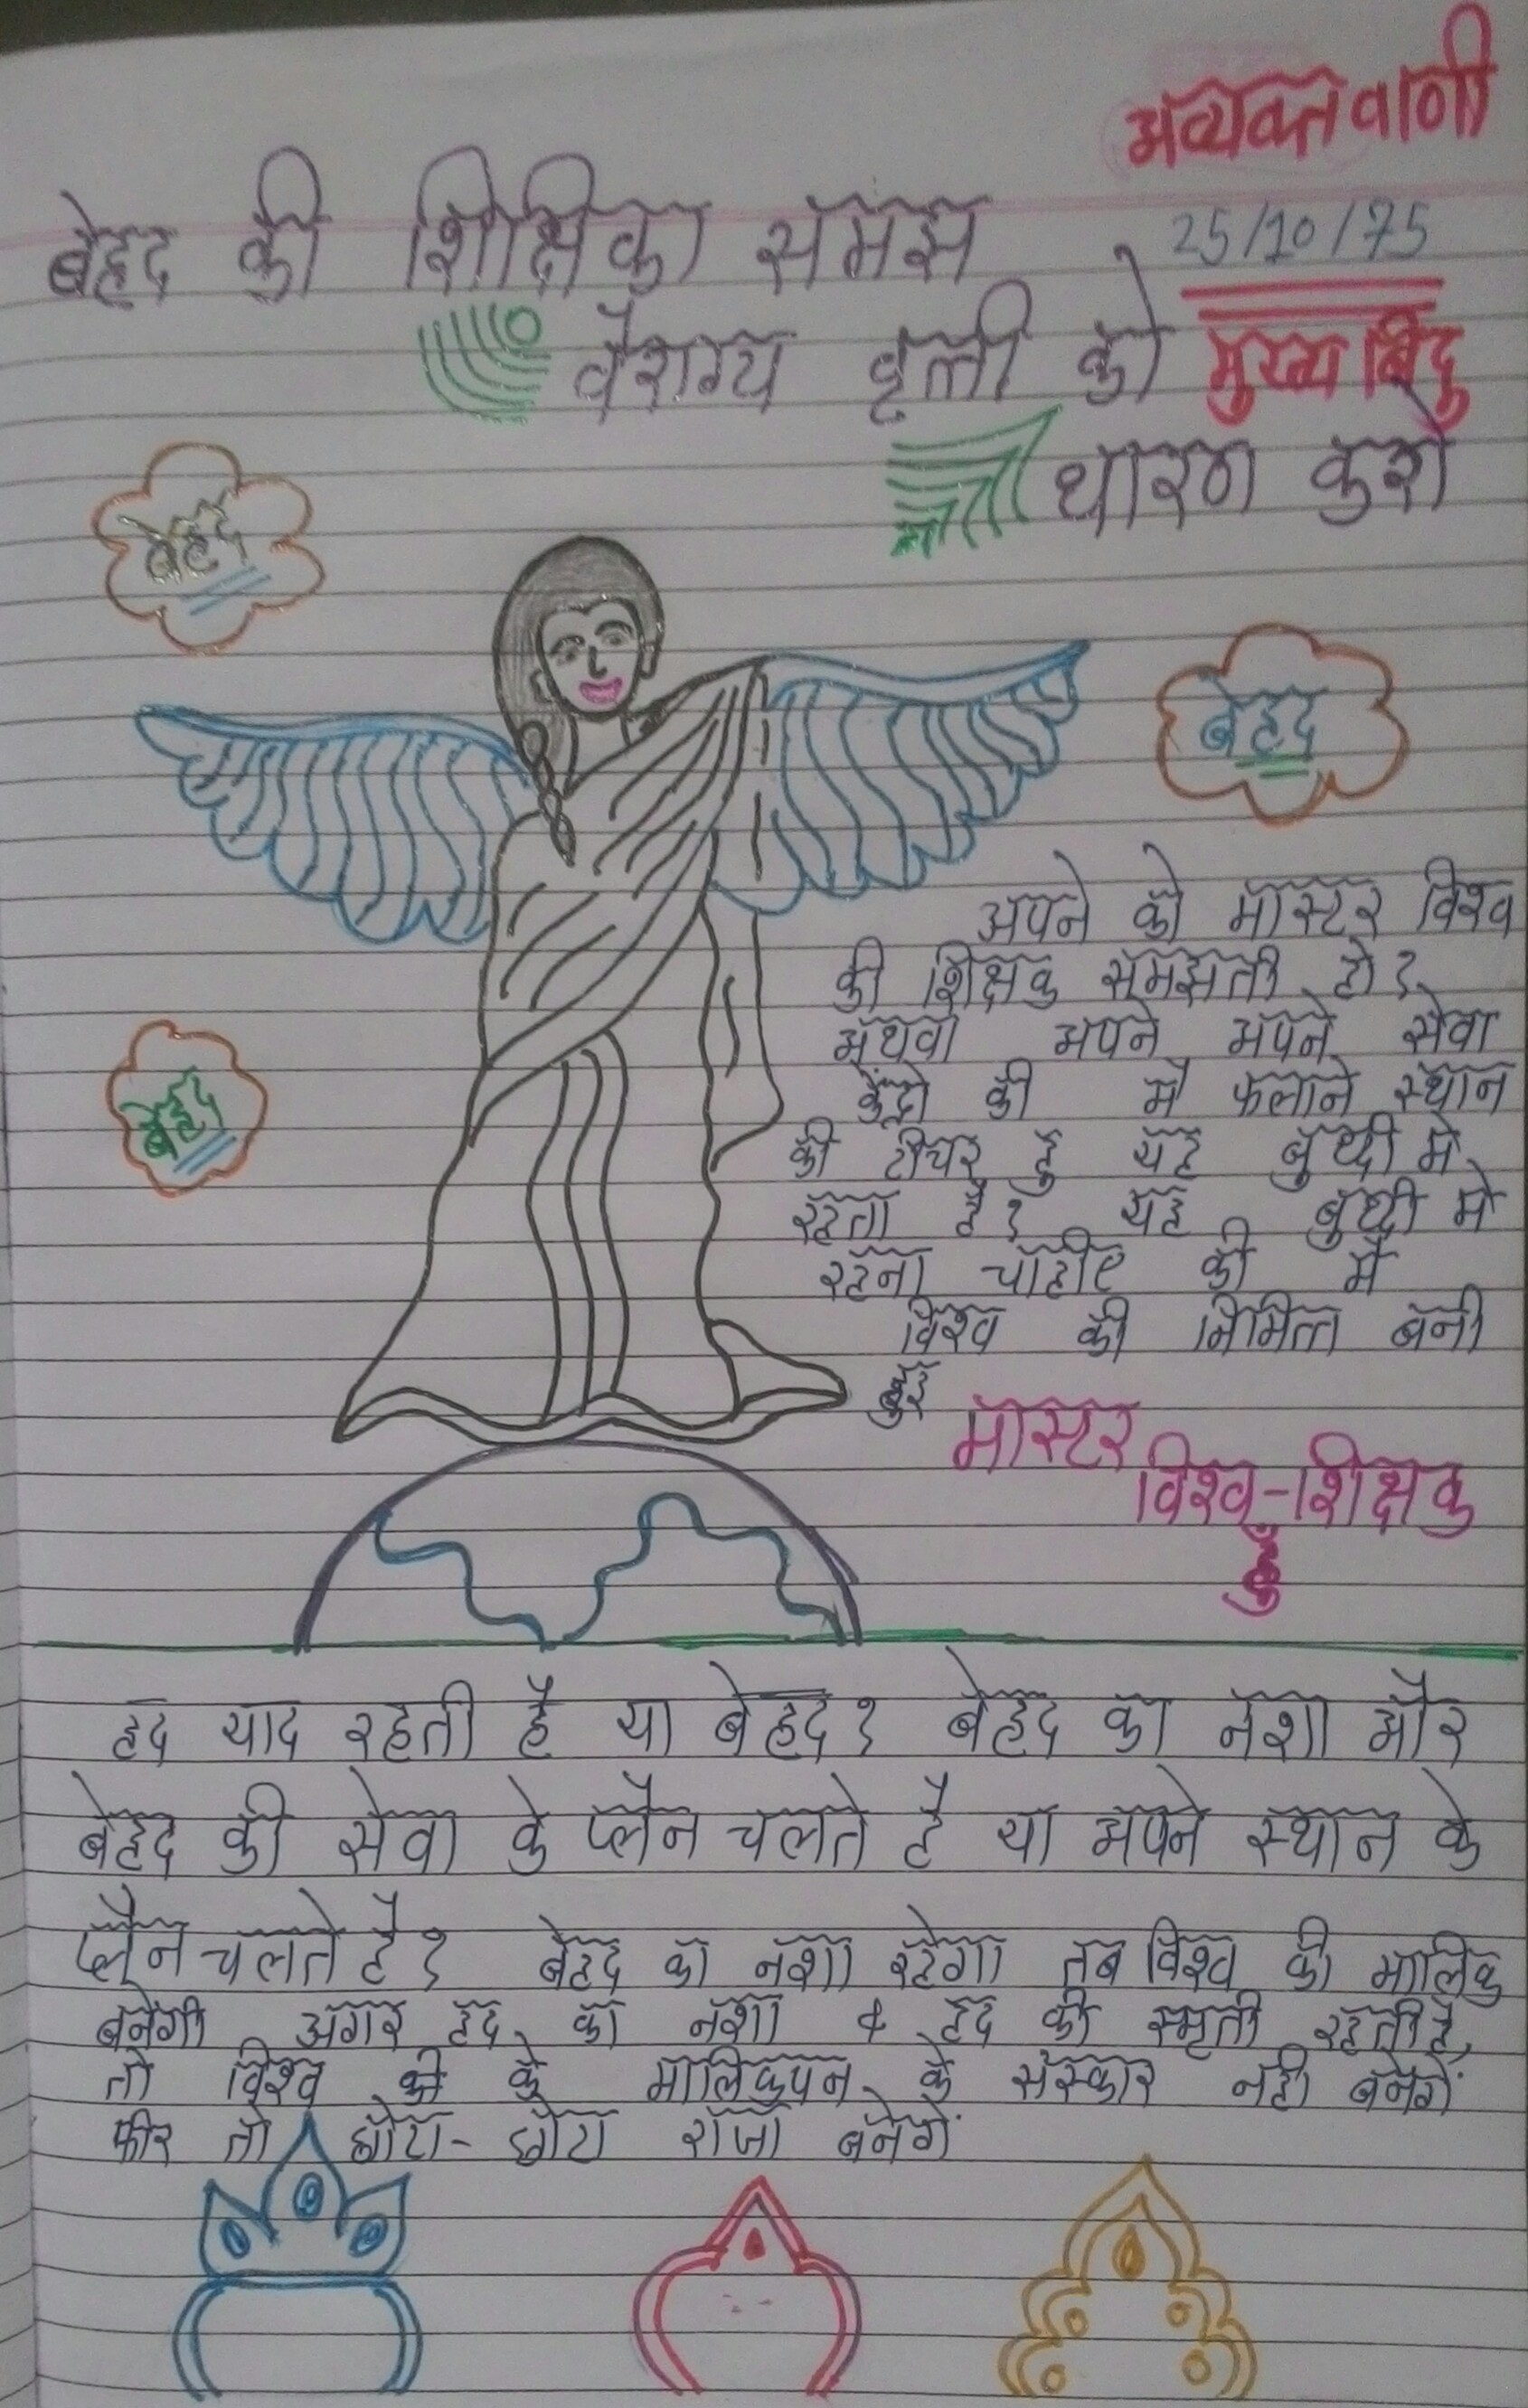 अव्यक्त वाणी
बेहद की शिक्षिका समझ
25/10/75
वैराग्य वृत्ती को
मुख्य बिंदु
धारण करो
बेहद
बेहद
अपने को मास्टर विश्व
की शिक्षक समझती हो?
अथवा अपने अपने सेवा
केंद्रो की मैं फलाने स्थान
बेहद
की टीचर हुं यह बुध्दी में
रहता है? यह बुध्दी में
रहना चाहीए की मैं
विश्व की निमित्त बनी
हुई
मास्टर
विश्व-शिक्षक
हूँ
हद याद रहती है या बेहद? बेहद का नशा और
बेहद की सेवा के प्लैन चलते है या अपने स्थान के
प्लैन चलते है? बेहद का नशा रहेगा तब विश्व की मालिक
बनेगी अगर हद का नशा & हद की स्मृती रहती है,
तो विश्व के मालिकपन के संस्कार नही बनेगें
फीर तो छोटा-छोटा राजा बनेगें